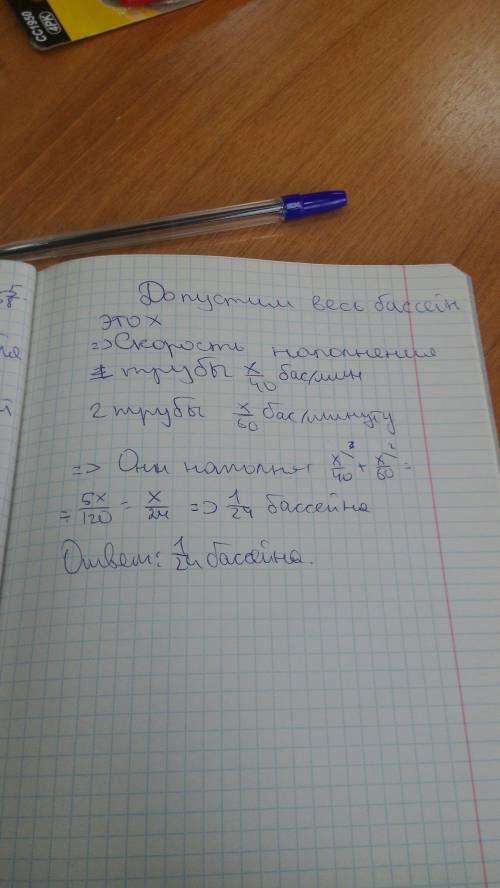 CC1950
4PK
Допустим весь бассейн
это x
=> Скорость наполнения
1 трубы x/40 бас/мин
2 трубы x/60 бас/минуту
=> Они наполнят x/40 ³ + x/60 ² =
= 5x/120 = x/24 => 1/24 бассейна
Ответ: 1/24 бассейна.